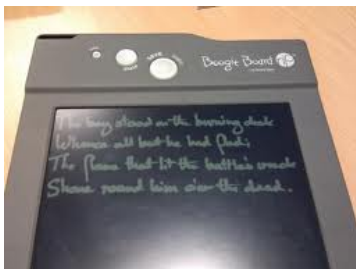 SAVE
Boogie Board
The boy stood on the burning deck
Whence all but he had fled;
The flame that lit the battle's wreck
Shone round him o'er the dead.